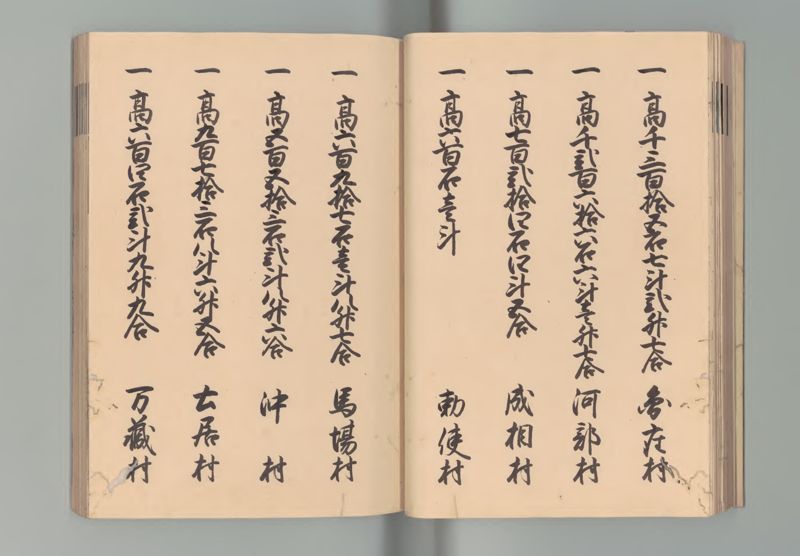 一 高千三百拾五石七斗弐升七合 魯庄村
一 高千弐百六拾六石六斗壱升七合 河部村
一 高七百弐拾四石四斗五合 成相村
一 高六百石壱斗 勅使村
一 高六百九拾七石壱斗八升七合 馬場村
一 高五百五拾三石弐斗八升六合 沖村
一 高九百七拾三石八斗六升五合 土居村
一 高六百四石弐斗九升九合 万蔵村